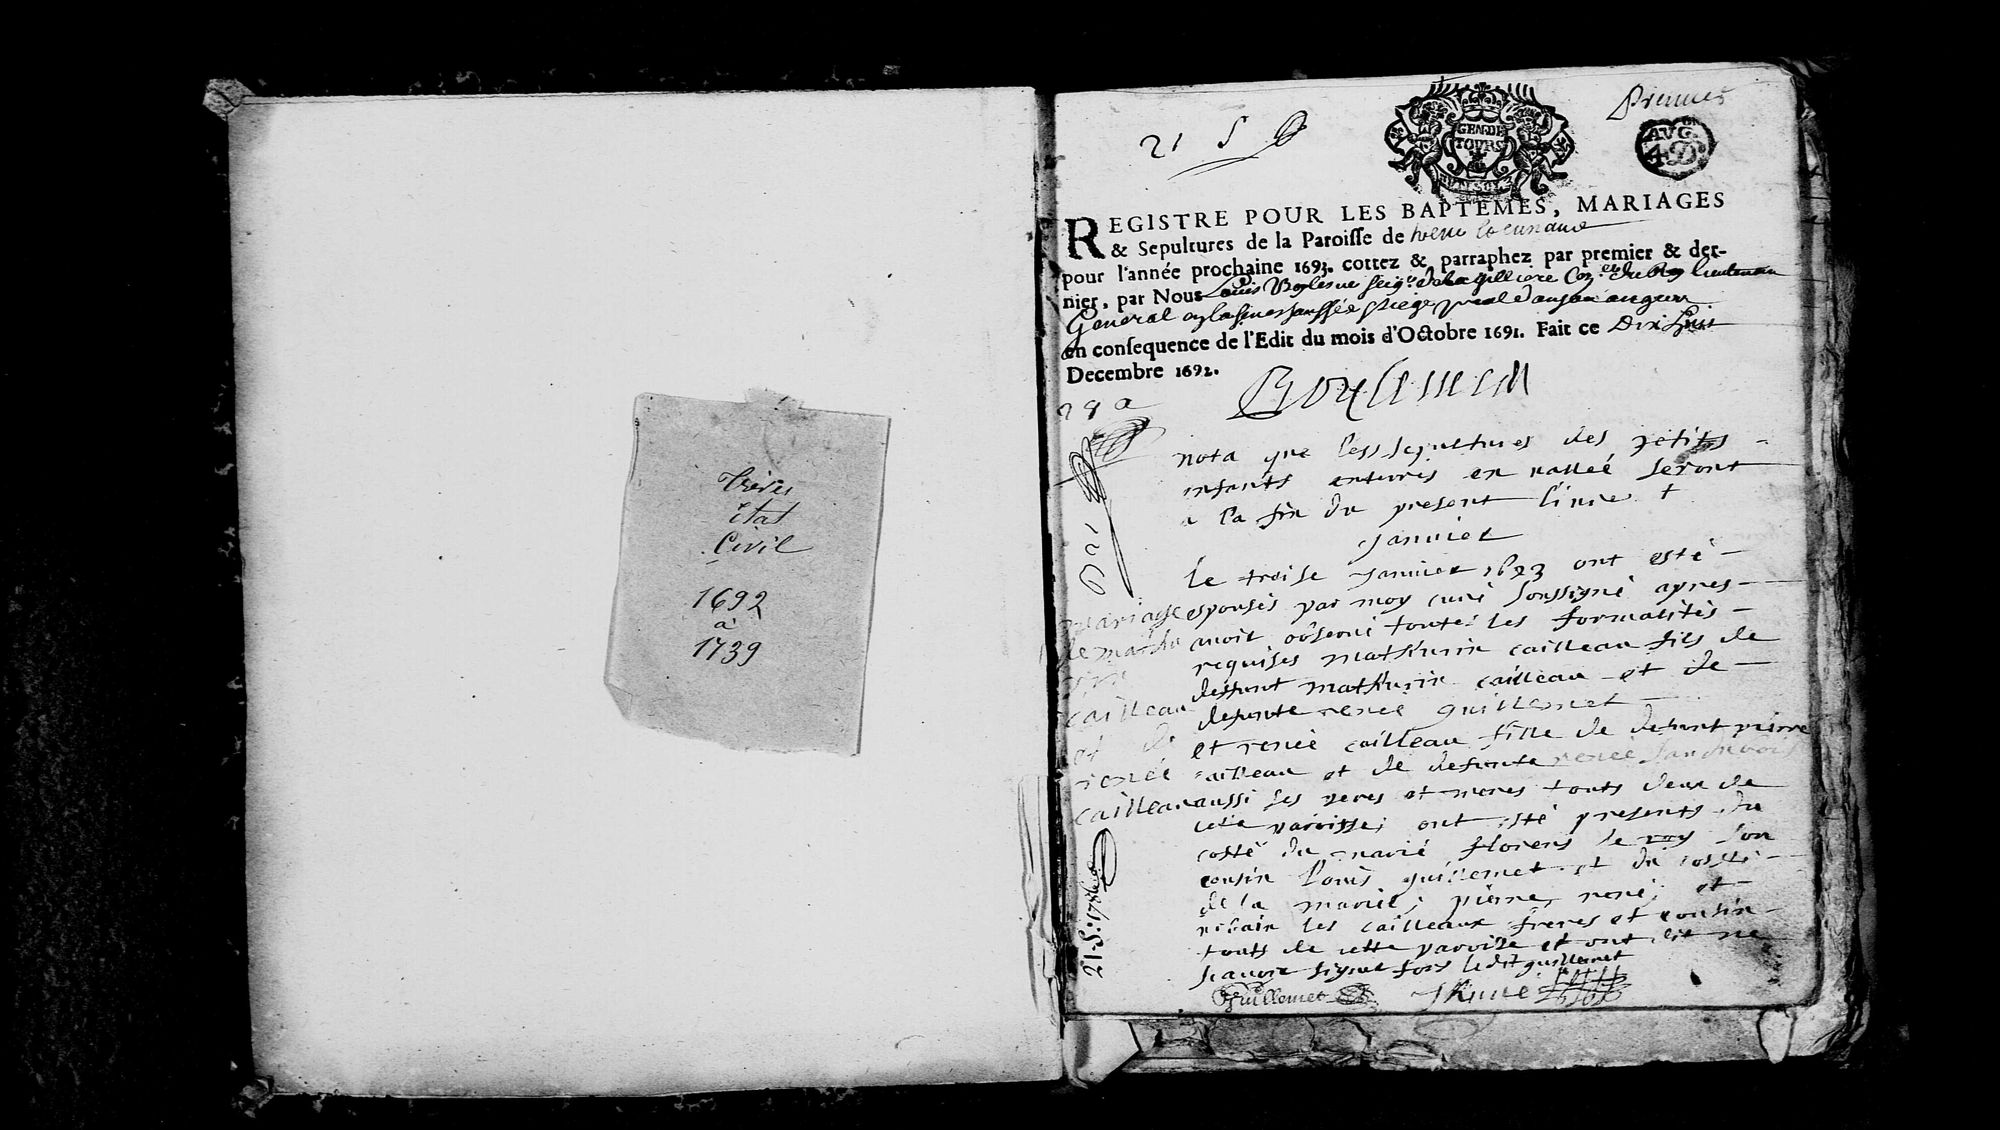 Trèves
Etat
Civil
1692
à
1739
21 S
Premier
GEN.DE
TOURS
AVG.
4 D
REGISTRE POUR LES BAPTEMES, MARIAGES
& Sepultures de la Paroisse de treve
pour l'année prochaine 1693. cottez & parraphez par premier & der-
nier, par Nous Louis Boylesve Seigr. de la gilliere Coner. du Roy lieutenan
General en la senechaussée siege
en consequence de l'Edit du mois d'Octobre 1691. Fait ce Dix huit
Decembre 1692.
Boylesve
nota que les sepultures des petits
enfants enterres en seront
a la fin du present livre +
Janvier
le troise Janvier 1693 ont esté
espousés par moy curé soussigné apres
avoir observé toutes les formalités
requises mathurin cailleau fils de
deffunt mathurin cailleau et de
defunte renee guillemet
et renée cailleau fille de defunt pierre
cailleau et de defunte renée
aussi ses peres et meres touts deux de
cette paroisse; ont esté presents du
costé du marié florens le roy son
cousin louis guillemet et du costé
de la mariée; pierre, rené, et
les cailleaux freres et cousin
touts de cette paroisse et ont dit ne
scavoir signer fors ledit guillemet
Guillemet
mariage
de mathu
rin
cailleau
et de
renée
cailleau
21 S: 1786